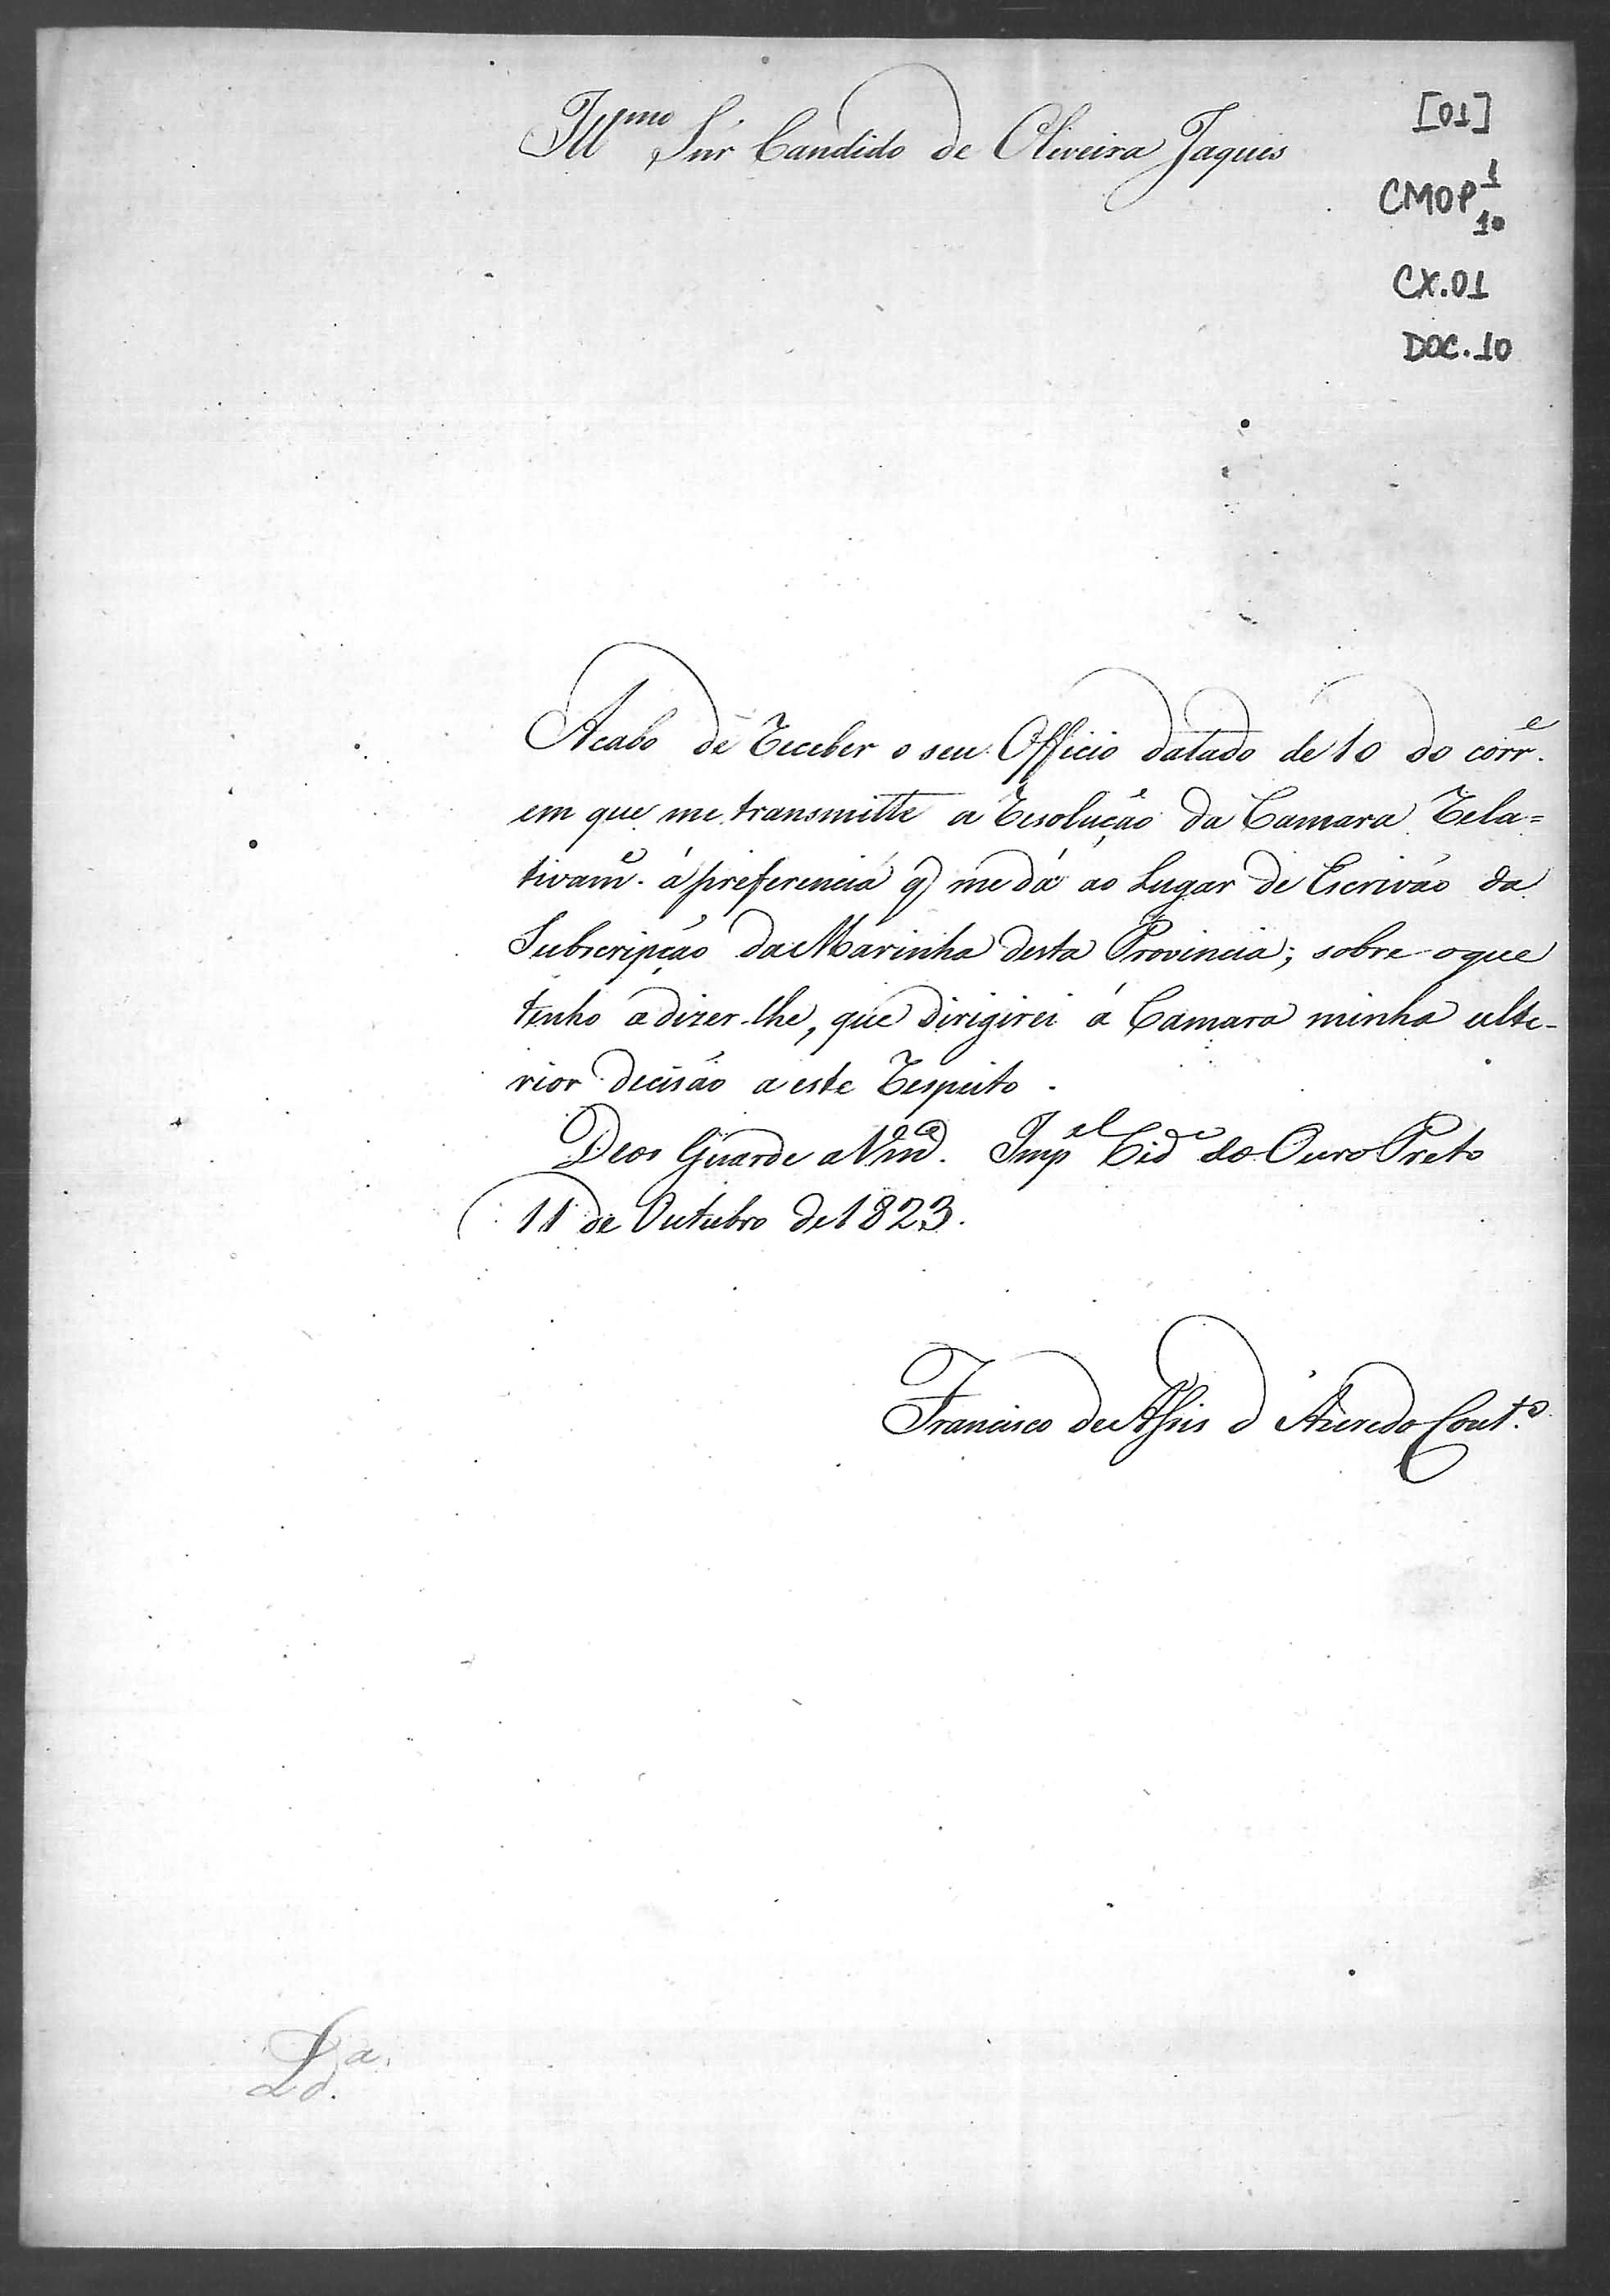 Ill.mo Snr Candido de Oliveira Jaques
[01]
CMOP 1
10
CX.01
DOC.10
Acabo de receber o seu Officio datado de 10 do corr.e
em que me transmitte a resolução da Camara rela=
tivam.e á preferencia q̃ me dá ao Lugar de Escrivão da
Subscripção da Marinha desta Provincia; sobre o que
tenho a dizer-lhe, que dirigirei á Camara minha ulte-
rior decisão a este respeito.
Deos Guarde a Vm.ce Imp.el Cid.e do Ouro Preto
11 de Outubro de 1823.
Francisco de Assis d'Azeredo Cout.o
L.da